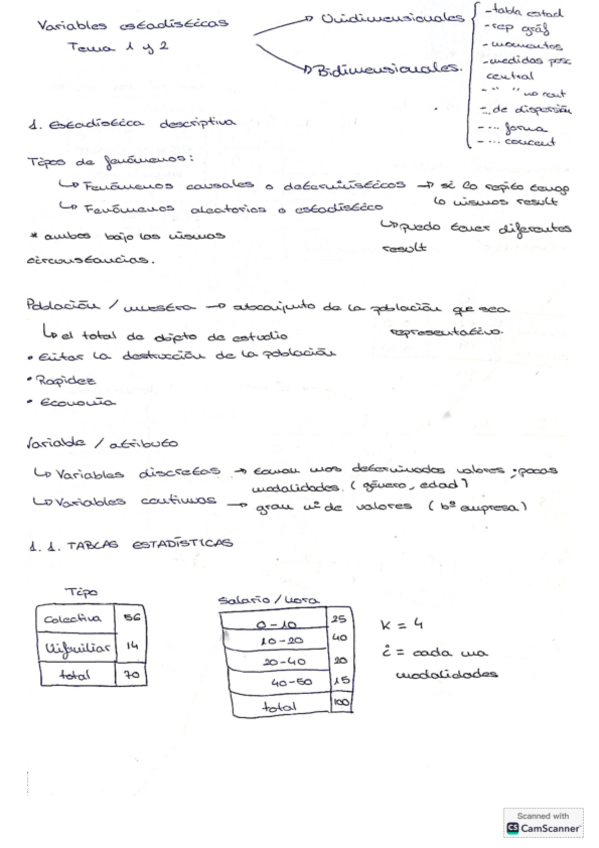 Variables estadísticas
Tema 1 y 2
→ Unidimensionales
→ Bidimensionales.
- tabla estad
- rep gráf
- momentos
- medidas posc
central
- " " no cent
- de dispersión
- ... forma
- ... concent
1. Estadística descriptiva
Tipos de fenómenos:
↳ Fenómenos causales o determinísticos → si lo repito tengo
lo mismos result
↳ Fenómenos aleatorios o estadístico
↳ puedo tener diferentes
result
* ambos bajo las mismas
circunstancias.
Población / muestra → subconjunto de la población que sea
representativo.
↳ el total de objeto de estudio
• Evitar la destrucción de la población
• Rapidez
• Economía
Variable / atributo
↳ Variables discretas → toman unos determinados valores; pocas
modalidades. (género, edad)
↳ Variables continuas → gran nº de valores (bº empresa)
1. 1. TABLAS ESTADÍSTICAS
Tipo
Colectiva 56
Unifmiliar 14
total 70
Salario / hora
0 - 10 25
10 - 20 40
20 - 40 20
40 - 50 15
total 100
K = 4
i = cada una
modalidades
Scanned with
CS CamScanner